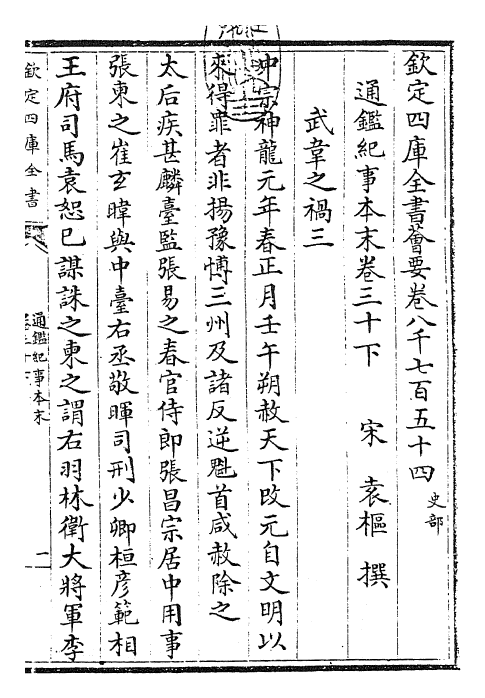 欽定四庫全書薈要卷八千七百五十四
史部
通鑑紀事本末卷三十下
宋 袁樞 撰
武韋之禍三
中宗神龍元年春正月壬午朔赦天下改元自文明以
來得罪者非揚豫博三州及諸反逆魁首咸赦除之
太后疾甚麟臺監張易之春官侍郎張昌宗居中用事
張柬之崔玄暐與中臺右丞敬暉司刑少卿桓彥範相
王府司馬袁恕己謀誅之柬之謂右羽林衛大將軍李
欽定四庫全書
通鑑紀事本末
卷三十下
一